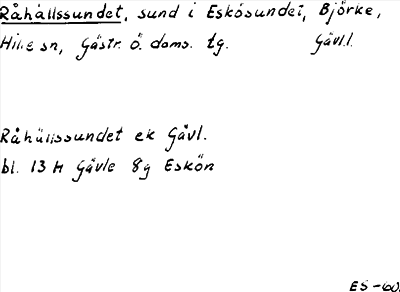 Råhällssundet, sund i Eskösundet, Björke,
Hille sn, Gästr. Ö. doms. tg. Gävl.l.
Råhällssundet ek Gävl.
bl. 13 H Gävle 8g Eskön
ES-60